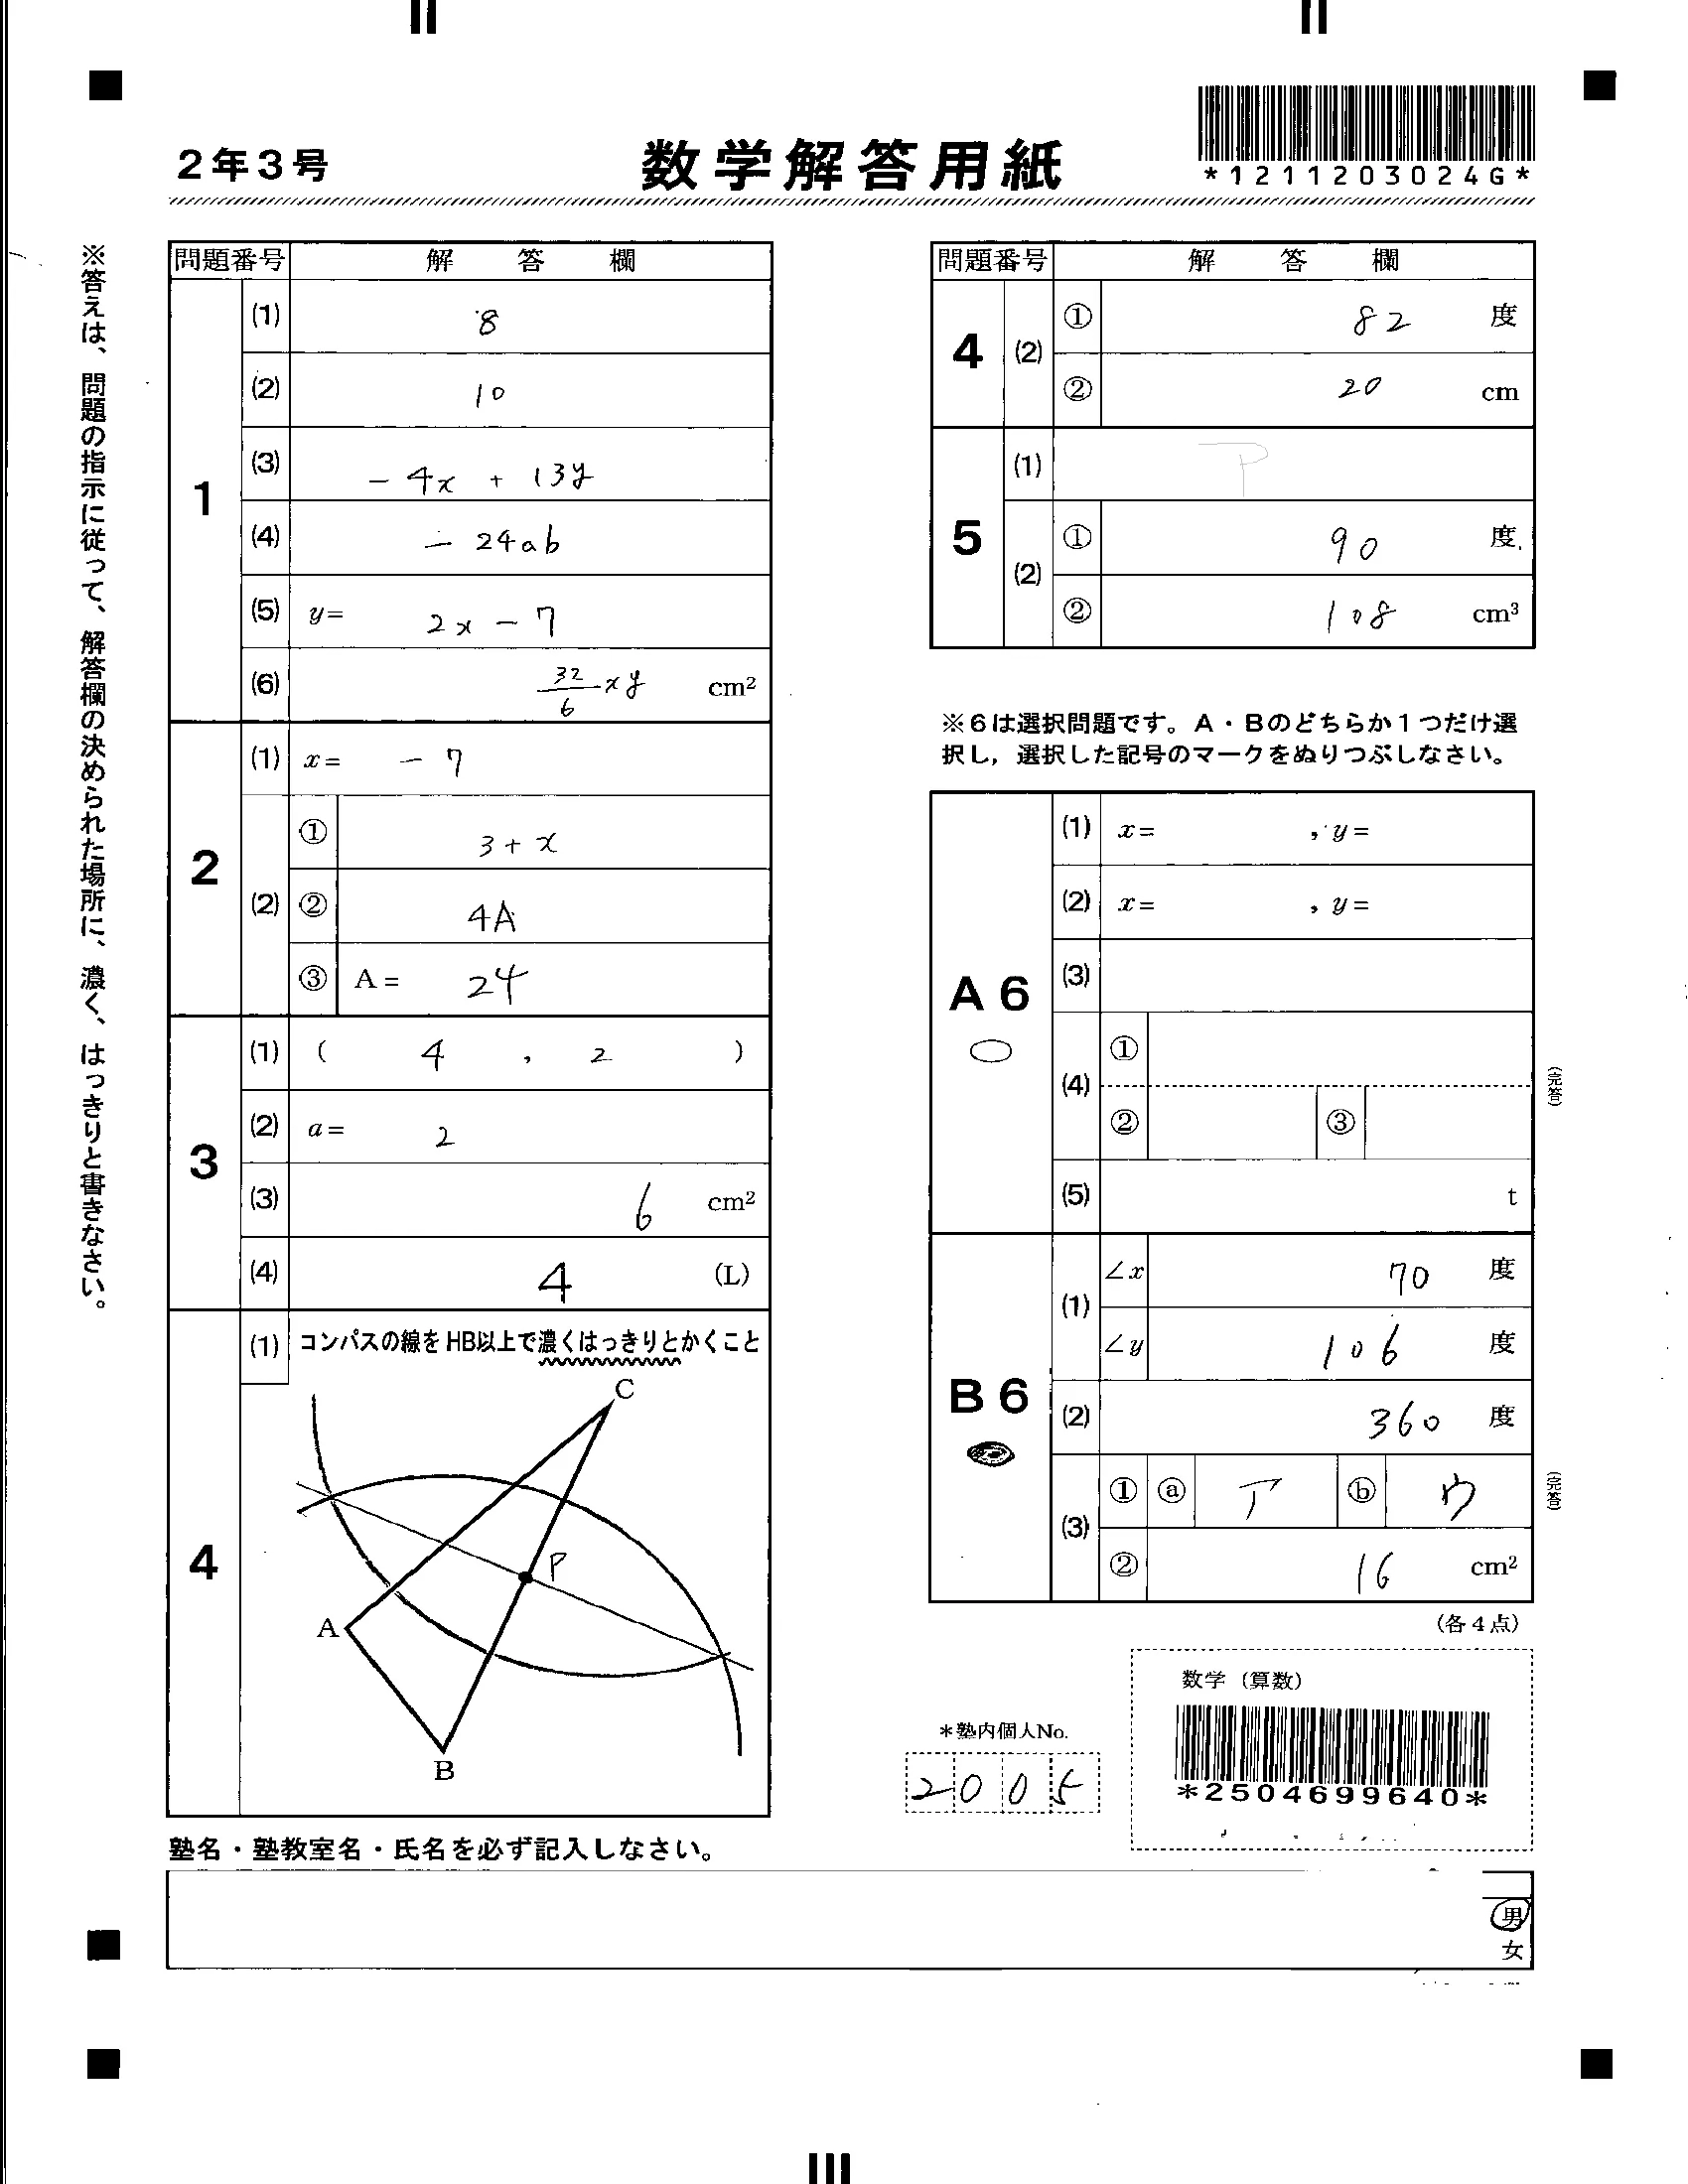 2年3号
数学解答用紙
*1211203024G*
※答えは、問題の指示に従って、解答欄の決められた場所に、濃く、はっきりと書きなさい。
問題番号 解答欄
1
(1) 8
(2) 10
(3) -4x + 13y
(4) -24ab
(5) y= 2x-7
(6) 32/6 xy cm²
2
(1) x= -7
(2)
① 3+x
② 4A
③ A= 24
3
(1) ( 4 , 2 )
(2) a= 2
(3) 6 cm²
(4) 4 (L)
4
(1) コンパスの線をHB以上で濃くはっきりとかくこと
C
P
A
B
問題番号 解答欄
4
(2)
① 82 度
② 20 cm
5
(1) ア
(2)
① 90 度
② 108 cm³
※6は選択問題です。A・Bのどちらか1つだけ選
択し,選択した記号のマークをぬりつぶしなさい。
A6
(1) x= , y=
(2) x= , y=
(3)
(4) ①
② ③
(完答)
(5) t
B6
(1) ∠x 70 度
∠y 106 度
(2) 360 度
(3) ① ⓐ ア ⓑ ウ
(完答)
② 16 cm²
(各4点)
*塾内個人No.
2005
数学(算数)
*2504699640*
塾名・塾教室名・氏名を必ず記入しなさい。
男
女